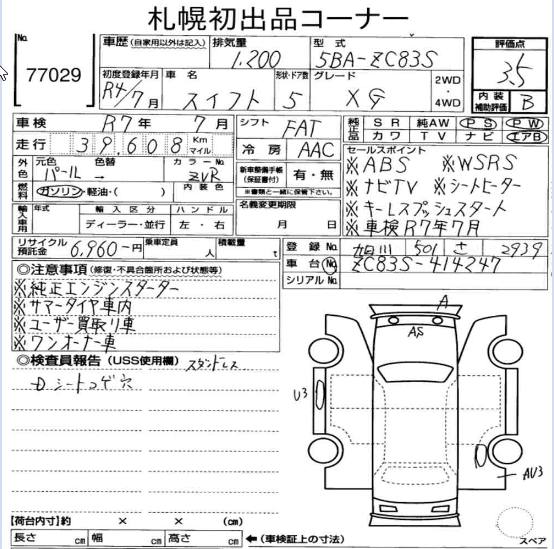 札幌初出品コーナー
No. 77029
車歴 (自家用以外は記入) 排気量 1,200 型式 5BA-ZC83S
初度登録年月 R4/7月 車名 スイフト 形状・ドア数 5 グレード XG 2WD ・ 4WD
評価点 3.5
内装補助評価 B
車検 R7年 7月 シフト FAT
走行 39,608 Km マイル 冷房 AAC
純正品 SR 純AW PS PW
カワ TV ナビ エアB
外色 元色 パール 色替 → カラーNo. ZVR
燃料 ガソリン・軽油・( ) 内装色
新車整備手帳 (保証書付) 有・無
※書類と一緒に保管下さい。
セールスポイント
※ABS ※WSRS
※ナビTV ※シートヒーター
※キーレスプッシュスタート
※車検R7年7月
輸入車用 年式 輸入区分 ハンドル
ディーラー・並行 左・右
名義変更期限 月 日
リサイクル預託金 6,960-円 乗車定員 人 積載量 t
登録No. 旭川 501 さ 2939
車台No. ZC83S-414247
シリアルNo.
◎注意事項 (修復・不具合箇所および状態等)
※純正エンジンスターター
※サマータイヤ車内
※ユーザー買取り車
※ワンオーナー車
◎検査員報告 (USS使用欄) スタッドレス
D シートコゲ穴
A
AS
U3
AU3
スペア
【荷台内寸】約 × × (cm)
長さ cm 幅 cm 高さ cm ←(車検証上の寸法)